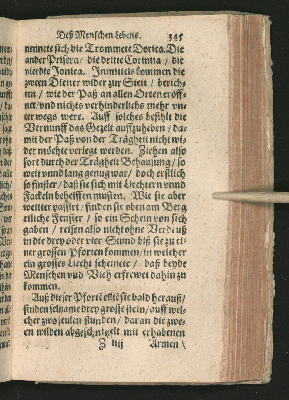 Deß Menschen Lebens. 345
nennete sich die Trommete Dorica. Die
ander die dritte Corintia / die
vierdte Jonica. Inmittels kommen die
zween Diener wider zur Stett / berich-
ten / wie der Paß an allen Orten eröff-
net / vnd nichts verhinderlichs mehr vn-
ter wegs were. Auff solches befihlt die
Vernunfft das Gezelt auffzuheben / da-
mit der Paß von der Trägheit nicht wi-
der möchte verlegt werden. Ziehen also
fort durch der Trägheit Behausung / so
weit vnnd lang genug war / doch erstlich
so finster / daß sie sich mit Liechtern vnnd
Fackeln behelffen musten. Wie sie aber
weitter passirt / finden sie oben am Berg
etliche Fenster / so ein Schein von sich
gaben / reisen also nicht ohne Verdruß
in die drey oder vier Stund biß sie zu ei-
ner grossen Pforten kommen / in welcher
ein grosses Liecht scheinete / daß beyde
Menschen vnd Vieh erfrewet dahin zu
kommen.
Auß dieser Pforte sie bald herauß /
finden selzame drey grosse stein / auff wel-
cher zwo seulen stunden / daran die zwe-
en wilden abgeschnitzelt mit erhabenen
Z iiij Armen